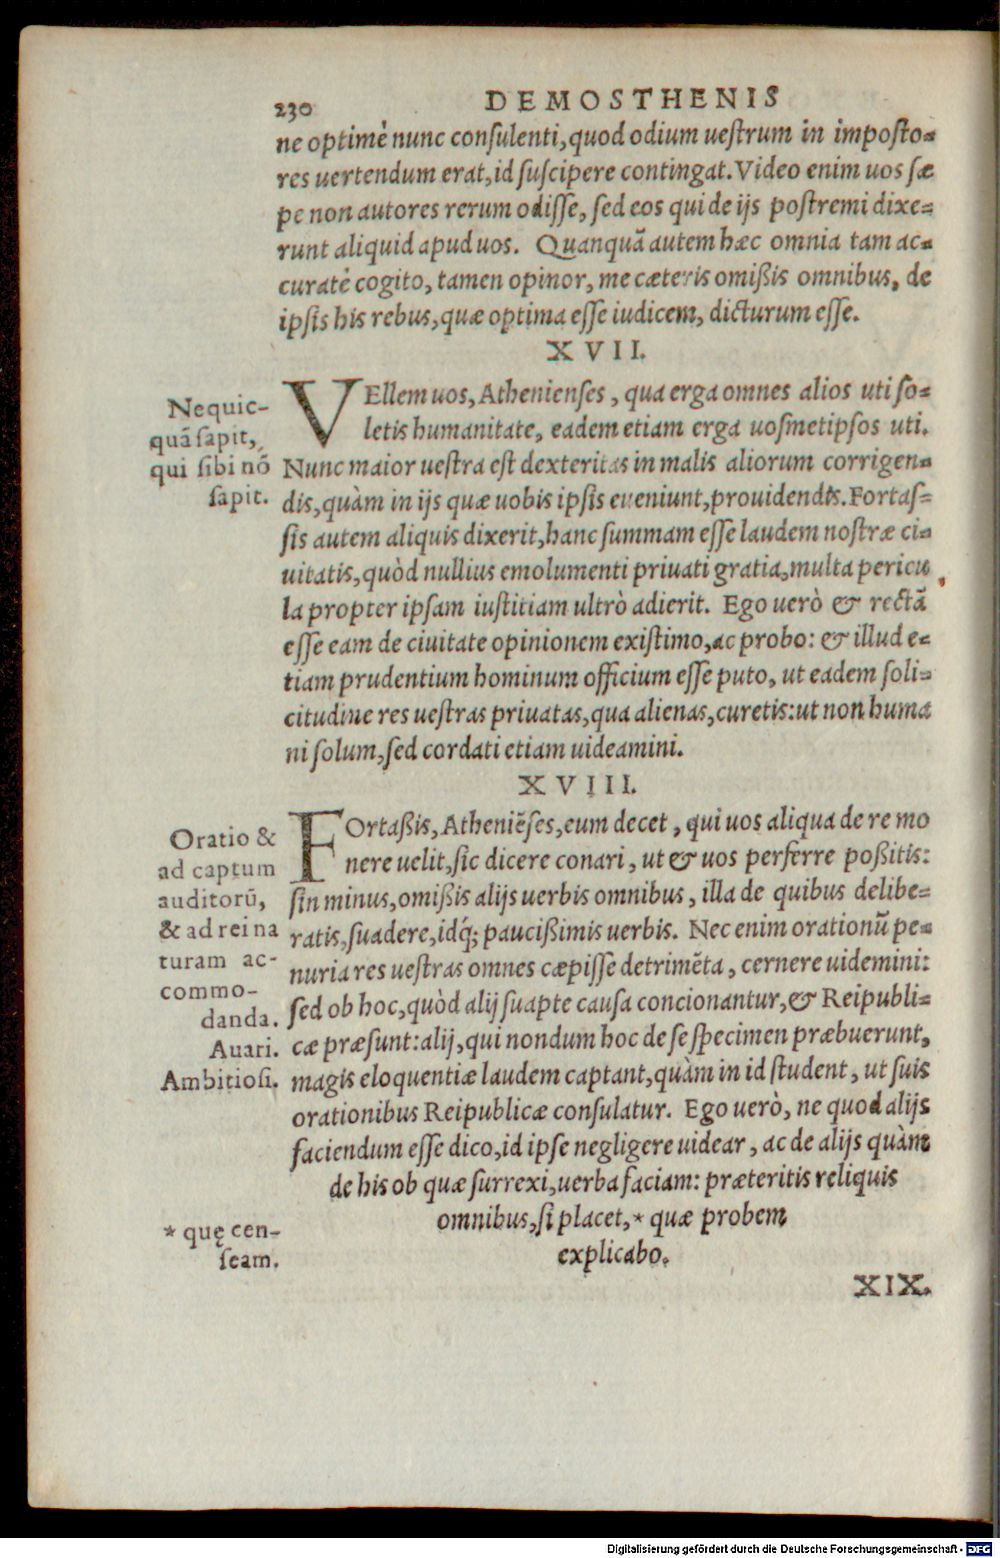 230 DEMOSTHENIS
ne optimè nunc consulenti, quod odium uestrum in imposto-
res uertendum erat, id suscipere contingat. Video enim uos sæ
pe non autores rerum odisse, sed eos qui de ijs postremi dixe-
runt aliquid apud uos. Quanquã autem hæc omnia tam ac-
curatè cogito, tamen opinor, me cæteris omißis omnibus, de
ipsis his rebus, quæ optima esse iudicem, dicturum esse.
XVII.
Nequic-
quã sapit,
qui sibi nõ
sapit.
VEllem uos, Athenienses, qua erga omnes alios uti so-
letis humanitate, eadem etiam erga uosmetipsos uti.
Nunc maior uestra est dexteritas in malis aliorum corrigen-
dis, quàm in ijs quæ uobis ipsis eueniunt, prouidendis. Fortas-
sis autem aliquis dixerit, hanc summam esse laudem nostræ ci-
uitatis, quòd nullius emolumenti priuati gratia, multa pericu
la propter ipsam iustitiam ultrò adierit. Ego uerò & rectã
esse eam de ciuitate opinionem existimo, ac probo: & illud e-
tiam prudentium hominum officium esse puto, ut eadem soli-
citudine res uestras priuatas, qua alienas, curetis: ut non huma
ni solum, sed cordati etiam uideamini.
XVIII.
Oratio &
ad captum
auditorũ,
& ad rei na
turam ac-
commo-
danda.
Auari.
Ambitiosi.
FOrtaßis, Atheniẽses, eum decet, qui uos aliqua de re mo
nere uelit, sic dicere conari, ut & uos perferre poßitis:
sin minus, omißis alijs uerbis omnibus, illa de quibus delibe-
ratis, suadere, idq́; paucißimis uerbis. Nec enim orationũ pe-
nuria res uestras omnes cæpisse detrimẽta, cernere uidemini:
sed ob hoc, quòd alij suapte causa concionantur, & Reipubli-
cæ præsunt: alij, qui nondum hoc de se specimen præbuerunt,
magis eloquentiæ laudem captant, quàm in id student, ut suis
orationibus Reipublicæ consulatur. Ego uerò, ne quod alijs
faciendum esse dico, id ipse negligere uidear, ac de alijs quàm
de his ob quæ surrexi, uerba faciam: præteritis reliquis
omnibus, si placet, * quæ probem
explicabo.
* quę cen-
seam.
XIX.
Digitalisierung gefördert durch die Deutsche Forschungsgemeinschaft - DFG